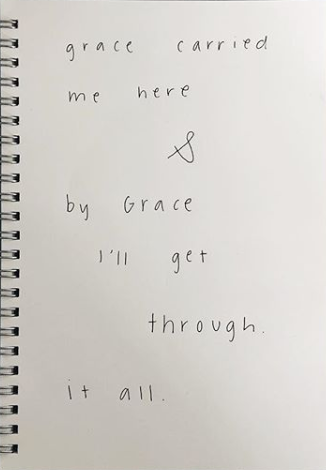 grace carried
me here
&
by Grace
I'll get
through.
it all.